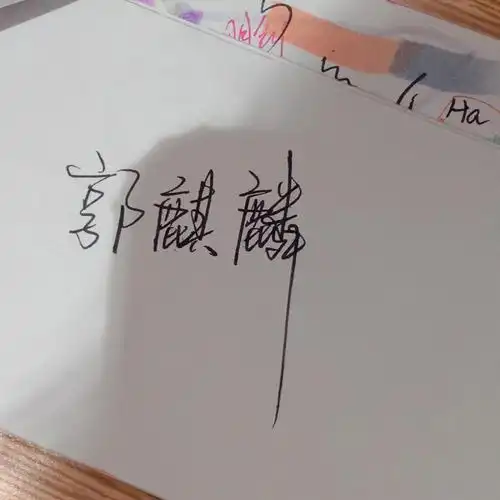 Ha
郭麒麟